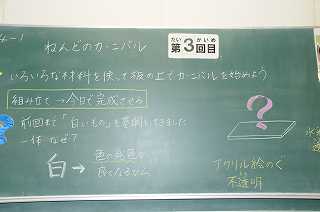 4-1
ねんどのカーニバル
だい かいめ
第3回目
いろいろな材料を使って板の上でカーニバルを始めよう
組み立て→今日で完成させる
前回まで「白いもの」を意識してきました
一体なぜ?
白→色の発色が
良くなるから
?
アクリル絵のぐ
不透明
水
透